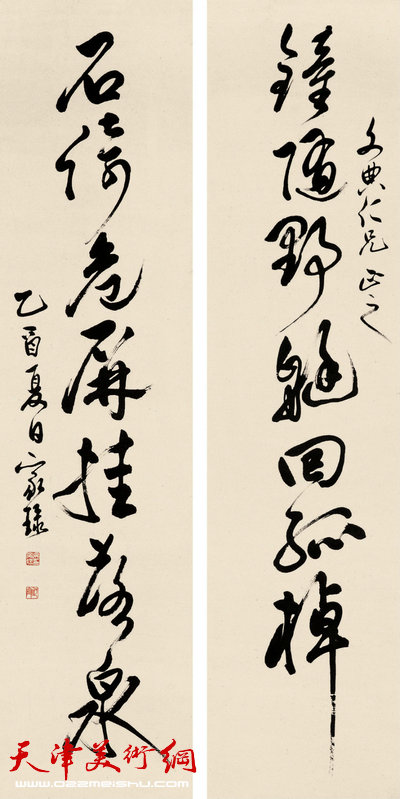 鐘随野艇回孤棹
文典仁兄正之
石倚危屏挂落泉
乙酉夏日家琭
天津美術網
www.022meishu.com